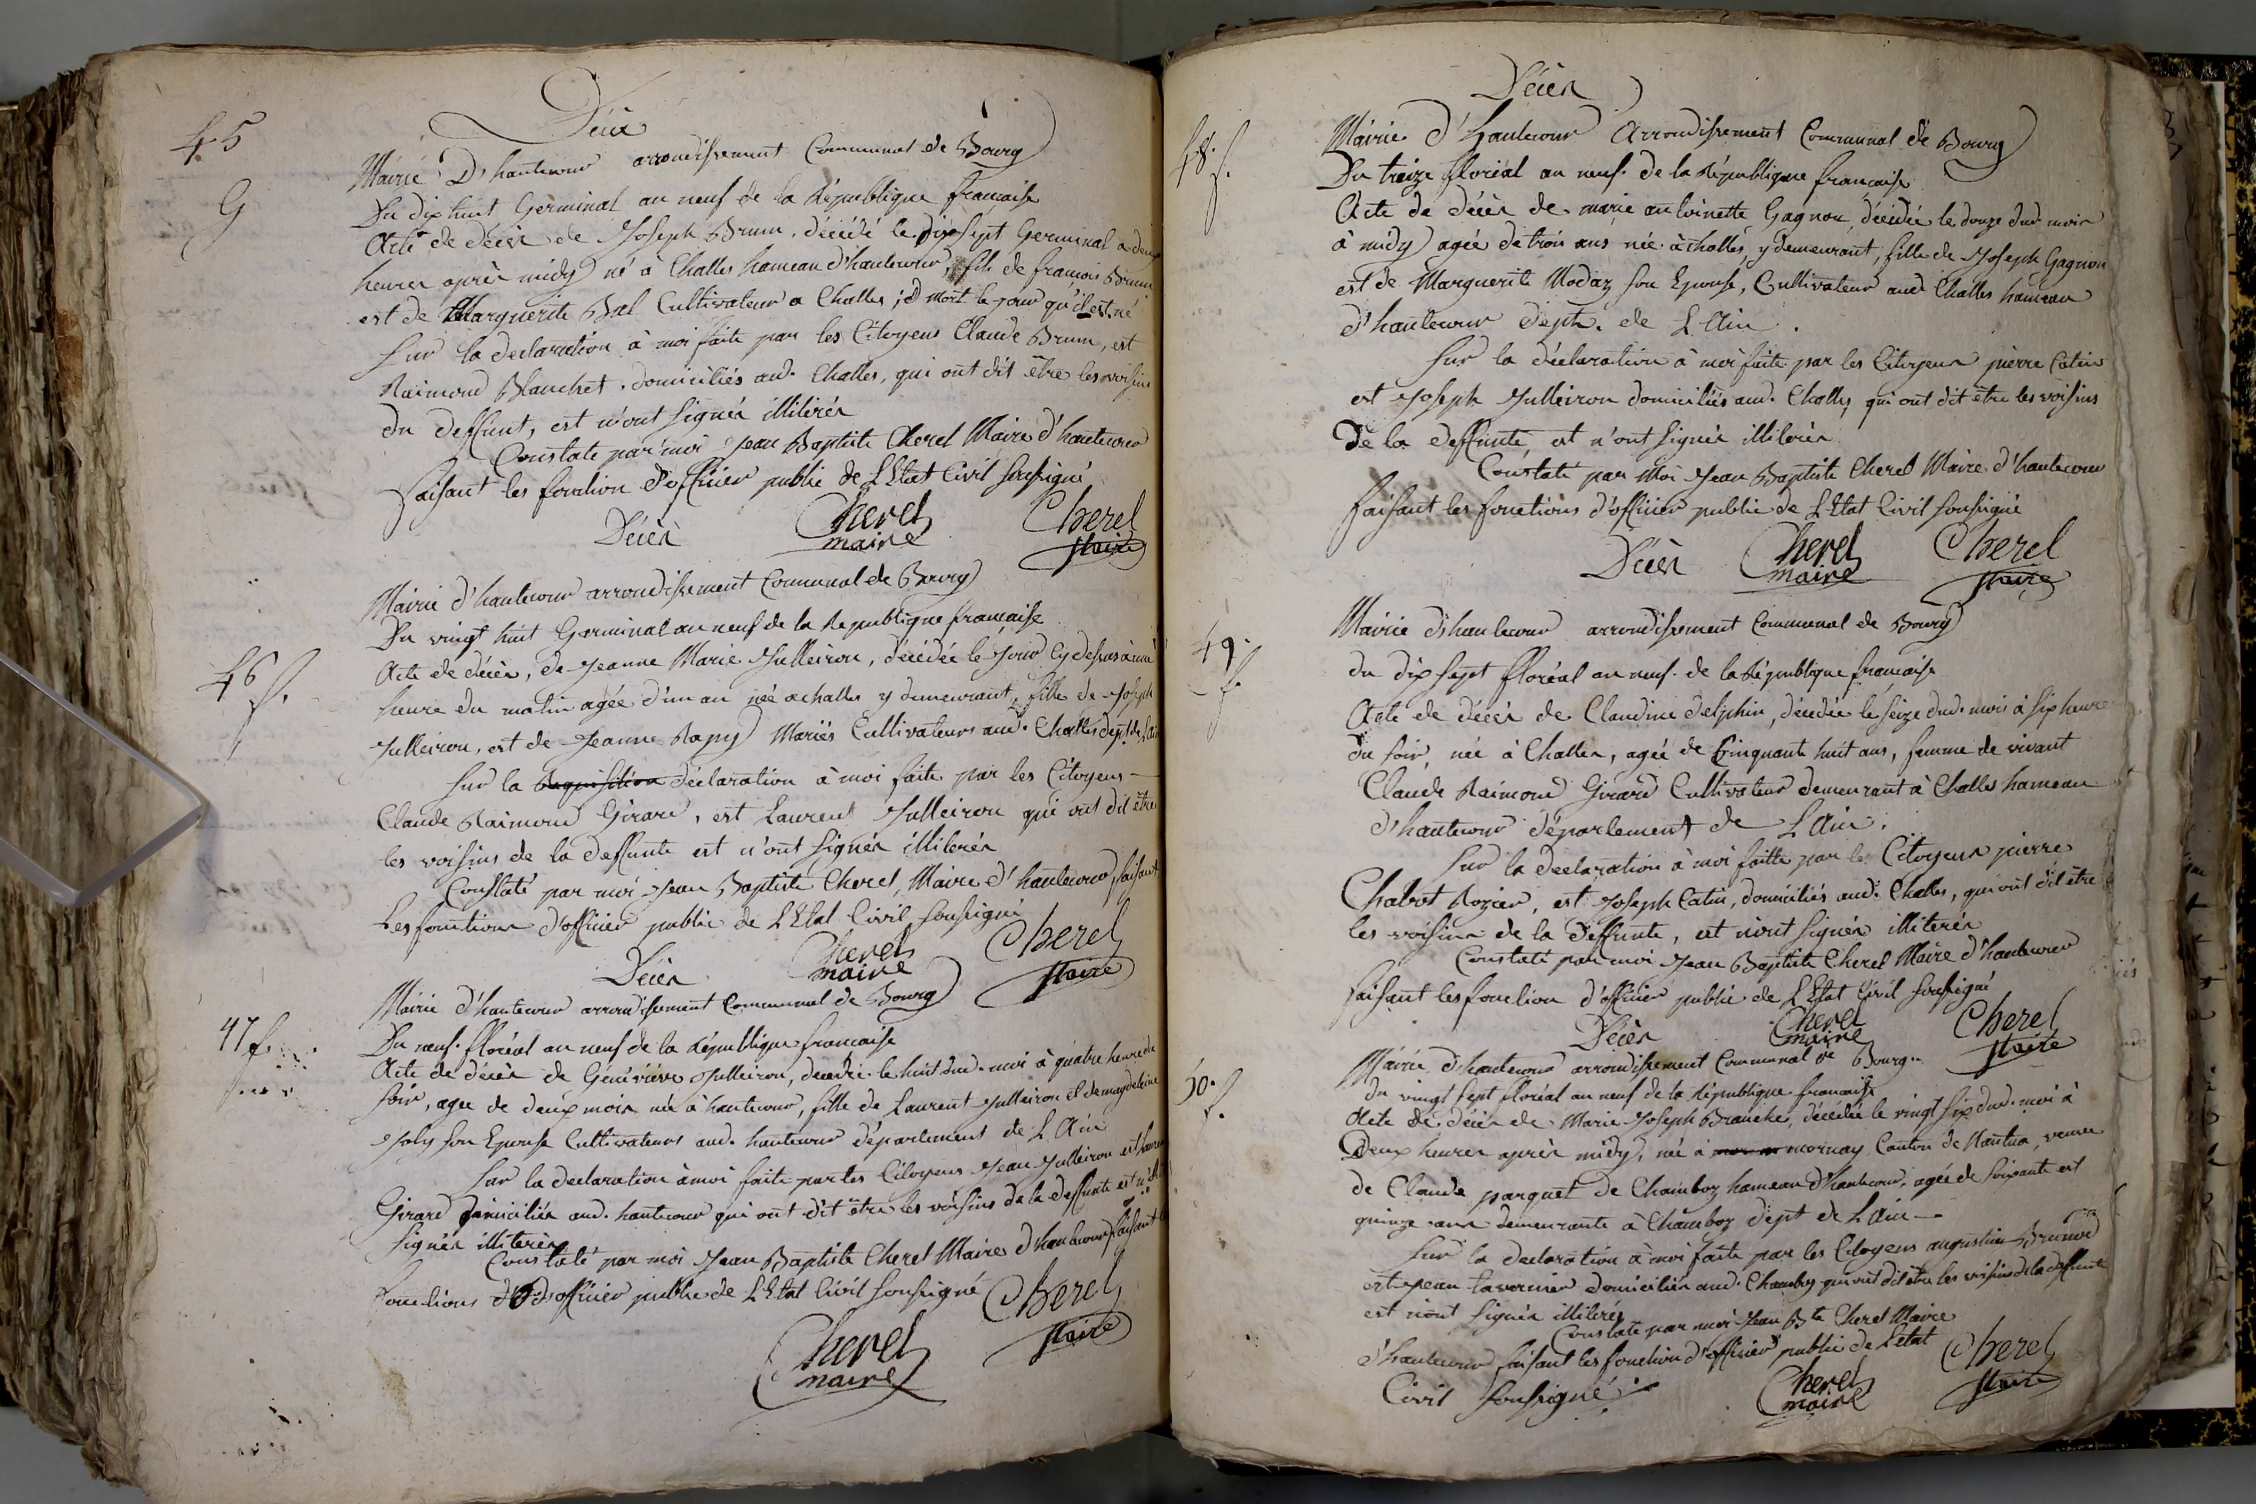 45
G
Décès
Mairie D'hautecour arrondissement Communal de Bourg
Du dix huit Germinal an neuf de la République francaise
Acte de décès de Joseph Brun, décédé le dixsept Germinal a deux
heures après midy né à Challes hameau d'hautecour, fils de francois Brun
est de Marguerite Bal Cultivateur a Challes ; mort le jour qu'il est né
Sur la declaration à moi faite par les Citoyens Claude Brun, est
Raimond Blanchet, domiciliés aud. Challes, qui ont dit être les voisins
du deffunt, est n'ont signés illiterés
Constate par moi Jean Baptiste Cherel Maire d'hautecour
faisant les fonction d'officier public de L'Etat Civil soussigné
Cherel
maire
Cherel
Maire
Décès
46
f.
Mairie d'hautecour arrondissement Communal de Bourg
Du vingt huit Germinal an neuf de la Republique francaise
Acte de décès, de Jeanne Marie Julleiron, décédée le jour cy dessus à une
heure du matin agée d'un an née a challes y demeurant, fille de Joseph
Julleiron, est de Jeanne Rapy Mariés Cultivateurs aud. Challes dept. de L'Ain
Sur la Requisition déclaration à moi faite par les Citoyens
Claude Raimond Girard, est Laurent Julleiron qui ont dit être
les voisins de la deffunte est n'ont signés illiterés
Constaté par moi Jean Baptiste Cherel, Maire d'hautecour, faisant
Les fonctions d'officier public de L'Etat Civil soussigné
Cherel
maire
Cherel
Maire
Décès
47 f.
Mairie d'hautecour arrondissement Communal de Bourg
Du neuf floréal an neuf de la République francaise
Acte de décès de Généviéve Julleiron, décedée le huit dud. moi à quatre heure du
soir, agee de deux mois née à hautecour, fille de Laurent Julleiron et de magdeleine
Joly son Epouse Cultivateurs aud. hautecour département de L'Ain
Sur la declaration à moi faite par les Citoyens Jean Julleiron est
Girard domiciliés aud. hautecour qui ont dit être les voisins de la deffunte est n'ont
signés illiterés
Constaté par moi Jean Baptiste Cherel Maire d'hautecour faisant les
fonctions d'officier public de L'Etat Civil soussigné
Cherel
maire
Cherel
Maire
Décès
48.
f.
Mairie d'hautecour Arrondissement Communal de Bourg
Du treize floréal an neuf. de la République francaise
Acte de décès de marie antoinette Gagnon, décédée le douze dud. mois
à midy agée de trois ans née à challes, y demeurant, fille de Joseph Gagnon
est de Marguerite Modaz son Epouse, Cultivateur aud. Challes hameau
d'hautecour dept. de L'Ain.
Sur la déclaration à moi faite par les Citoyens pierre Catin
est Joseph Julleiron domiciliés aud. Challes, qui ont dit être les voisins
De la deffunte, est n'ont signés illiterés
Constaté par Moi Jean Baptiste Cherel Maire d'hautecour
faisant les fonctions d'officier public de L'Etat Civil soussigné
Cherel
maire
Cherel
Maire
Décès
49.
f.
Mairie d'hautecour arrondissement Communal de Bourg
du dix sept floréal an neuf. de la République francaise
Acte de décés de Claudine Delphin, décedée le seize dud. mois à six heure
du soir, née à Challes, agée de Cinquante huit ans, femme de vivant
Claude Raimond Girard Cultivateur demeurant à Challes hameau
d'hautecour département de L'Ain.
Sur la declaration à moi faitte par les Citoyens pierre
Chabot Rozier, est Joseph Catin, domiciliés aud. Challes, qui ont dit être
les voisins de la deffunte, est n'ont signés illiterés
Constaté par moi Jean Baptiste Cherel Maire d'hautecour
faisant les fonction d'officier public de L'Etat Civil soussigné
Cherel
maire
Cherel
Maire
Décès
50.
f.
Mairie d'hautecour arrondissement Communal de Bourg
du vingt sept floréal an neuf de la République francaise
Acte de décès de Marie Joseph Branche, décédée le vingt six dud. moi à
Deux heures après midy, née à mornay Canton de Nantua, veuve
de Claude parquet de Chamboz hameau d'hautecour, agée de soixante est
quinze ans demeurante à Chamboz dept de L'Ain
Sur la declaration à moi faite par les Citoyens augustin
est Jean tavernier domiciliés aud. Chamboz qui ont dit être les voisins de la deffunte
est n'ont signés illiterés
Constaté par moi Jean Bte Cherel Maire
d'hautecour faisant les fonction d'officier public de L'etat
Civil soussigné
Cherel
maire
Cherel
Maire